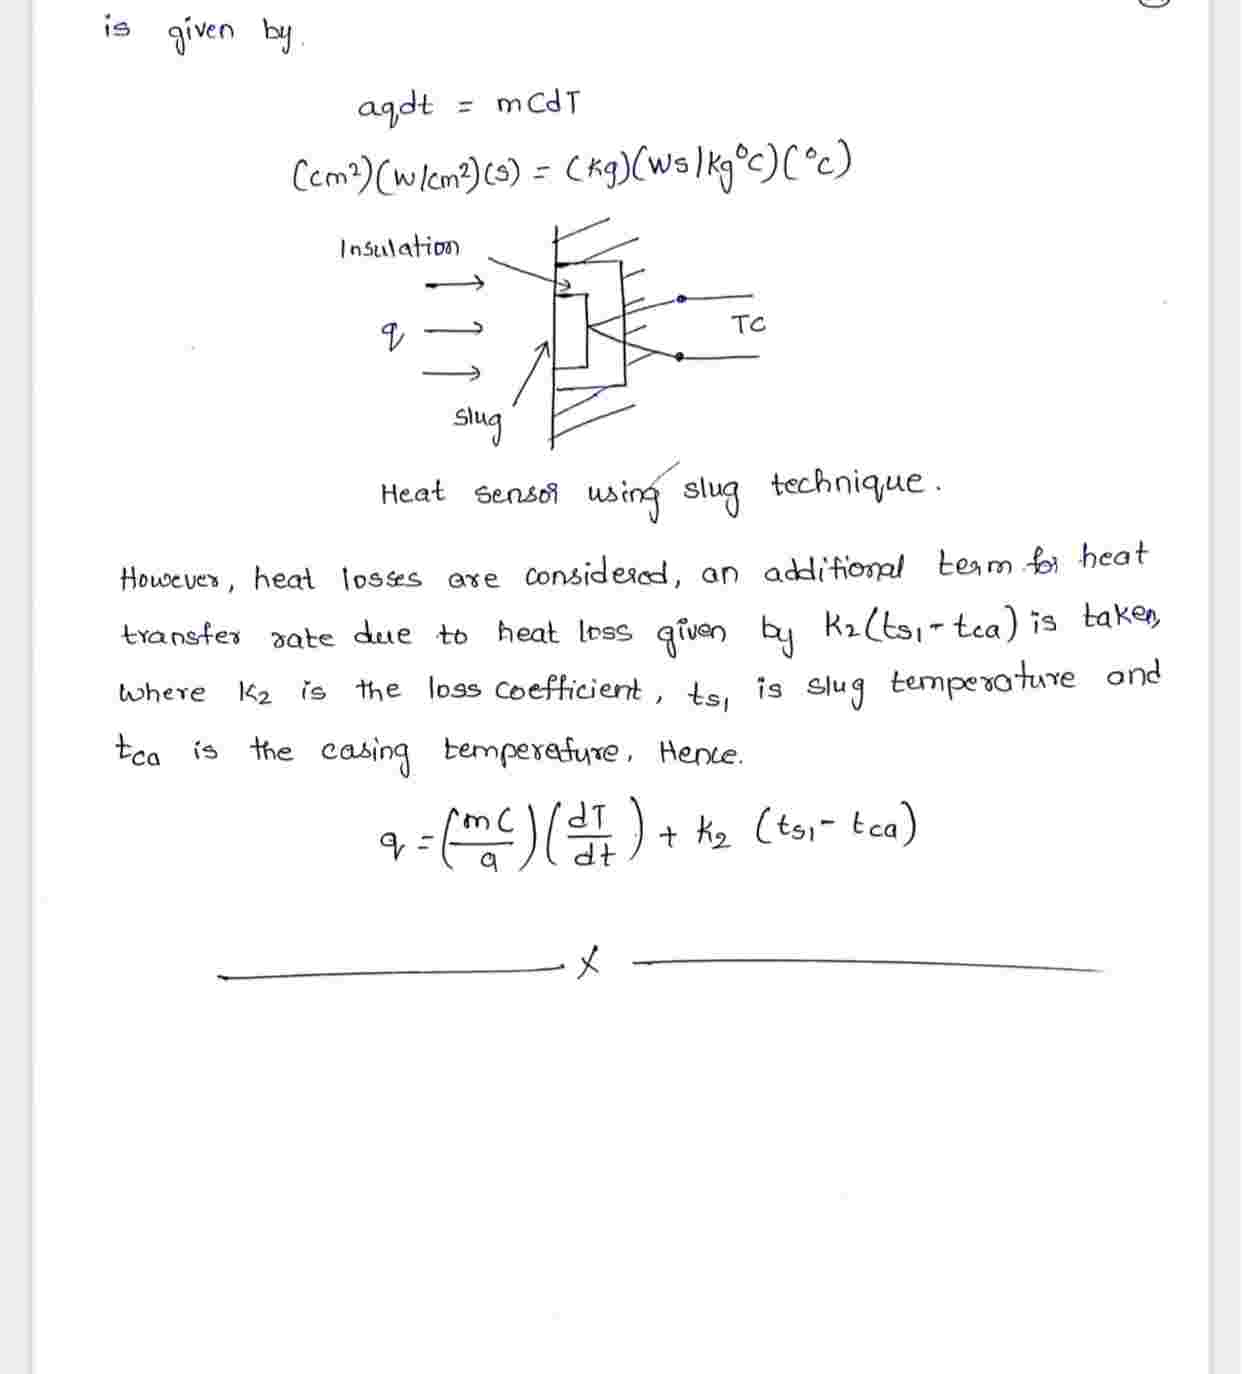 is given by.
aqdt = mCdT
(cm²)(W/cm²)(s) = (kg)(Ws/kg°C)(°C)
Insulation
q
TC
slug
Heat sensor using slug technique.
However, heat losses are considered, an additional term for heat
transfer rate due to heat loss given by K₂(ts₁ - tca) is taken,
where K₂ is the loss coefficient, ts₁ is slug temperature and
tca is the casing temperature. Hence.
q = (mC/a)(dT/dt) + k₂ (ts₁ - tca)
x